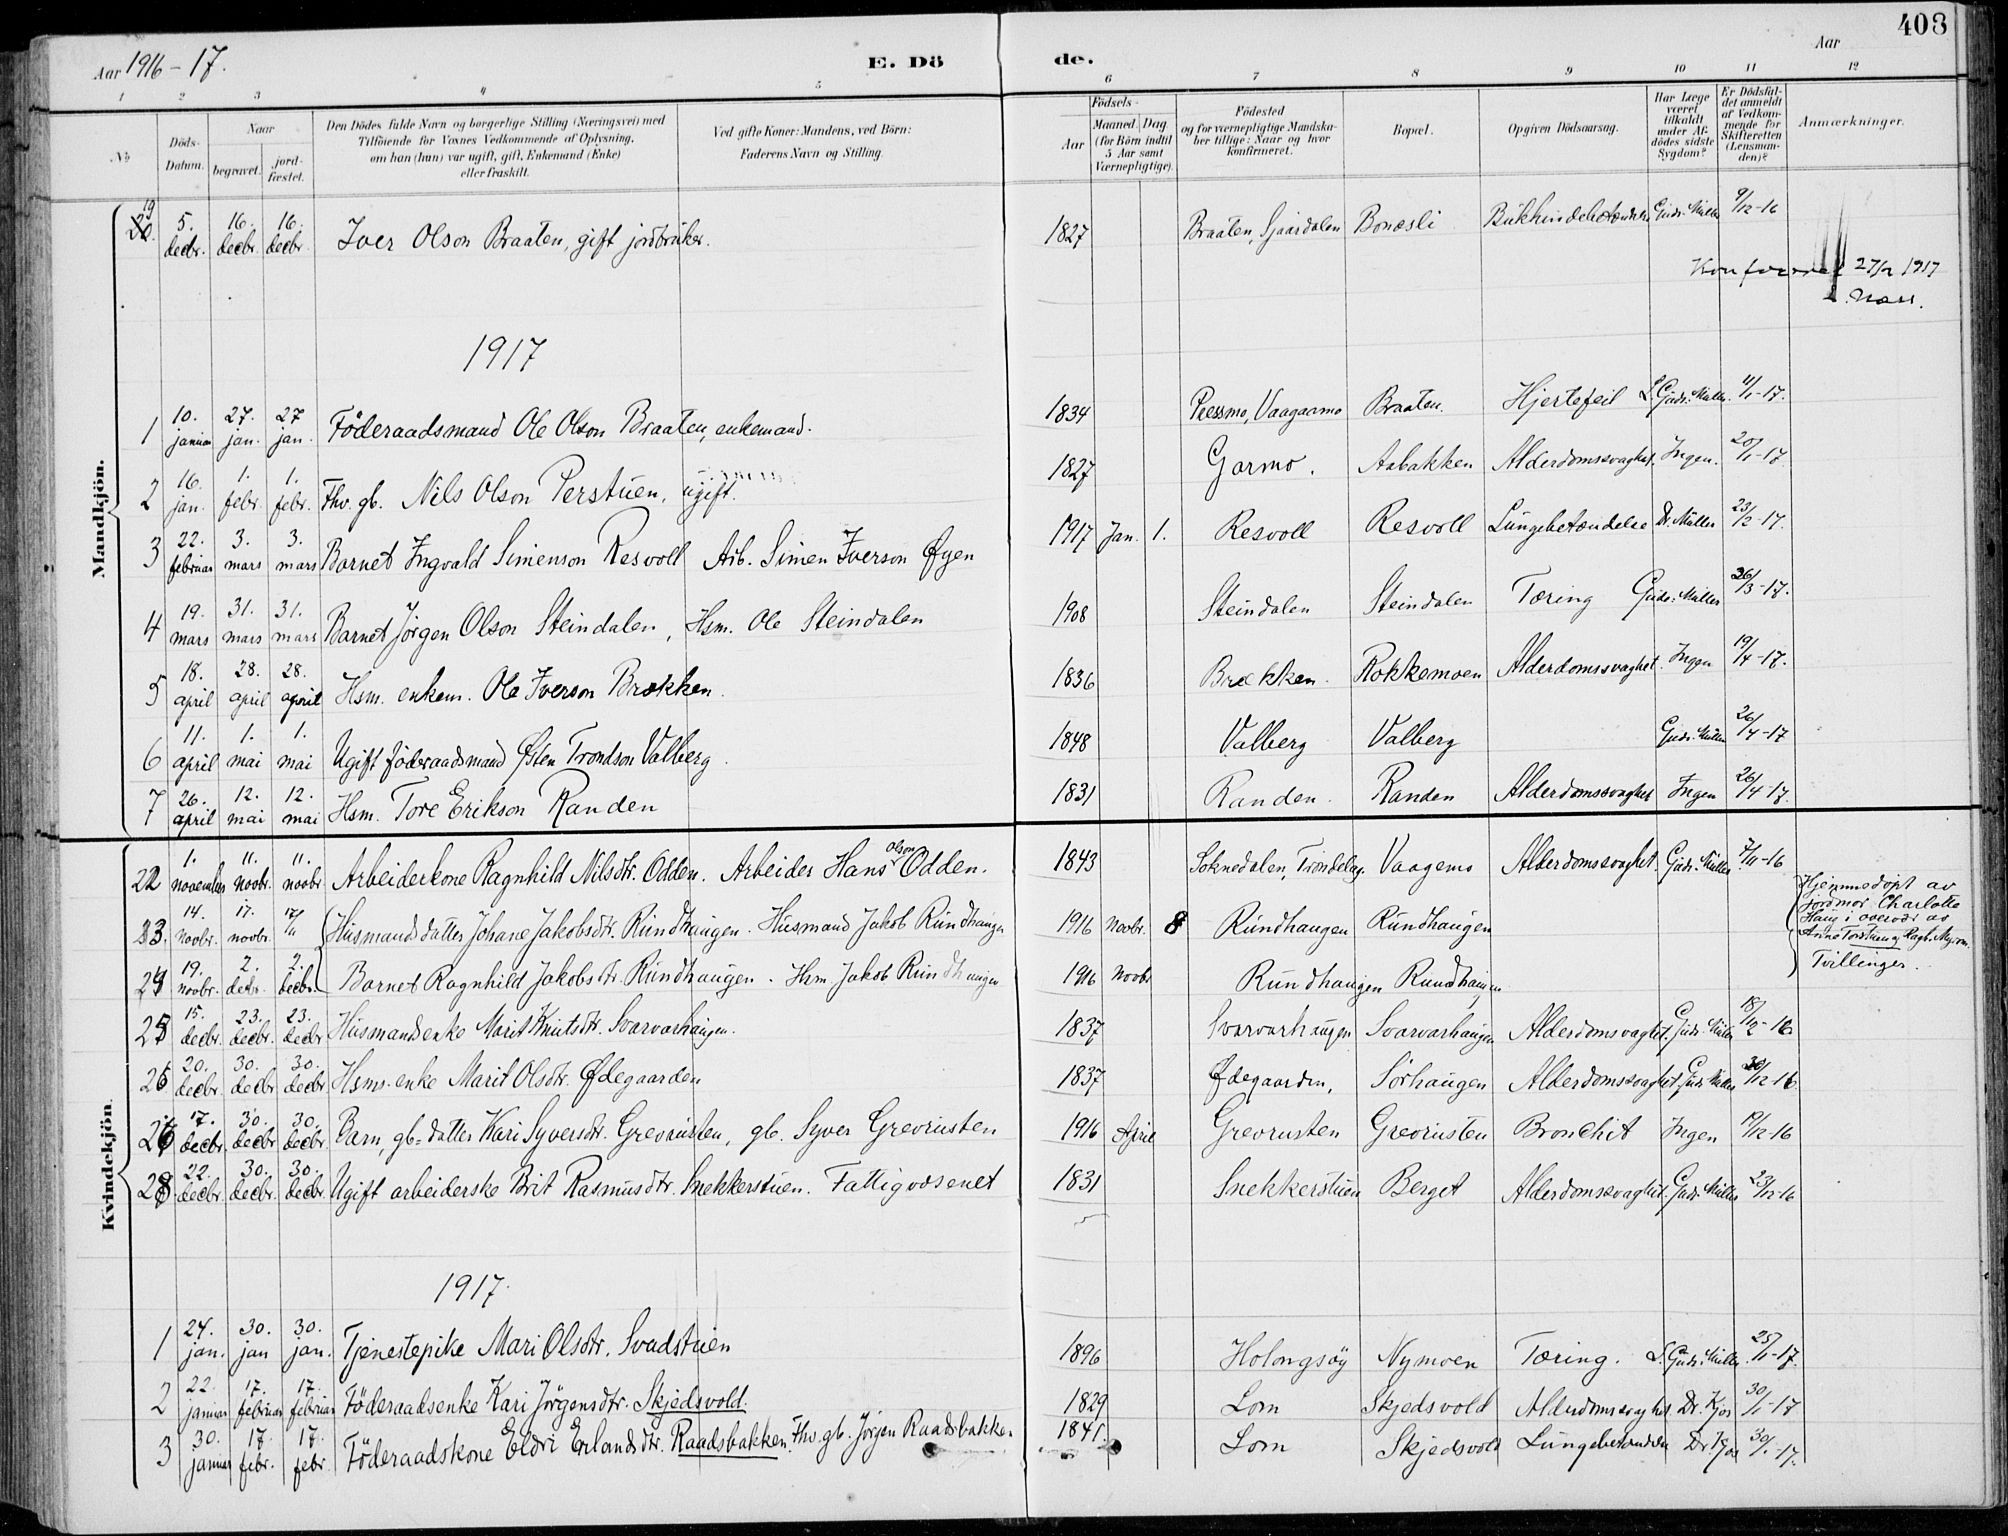 408
Aar 1916-17.
E. Dö de.
Aar
1 2 3 4 5 6 7 8 9 10 11 12
No
Döds-Datum.
Naar begravet. jordfæstet.
Den Dödes fulde Navn og borgerlige Stilling (Næringsvei) med Tilföiende for Voxnes Vedkommende af Oplysning, om han (hun) var ugift, gift, Enkemand (Enke) eller fraskilt.
Ved gifte Koner: Mandens, ved Börn: Faderens Navn og Stilling.
Födsels-
Aar
Maaned. Dag (for Börn indtil 5 Aar samt Værnepligtige).
Födested og for værnepligtige Mandskaber tillige: Naar og hvor konfirmeret.
Bopæl.
Opgiven Dödsaarsag.
Har Læge været tilkaldt under Afdödes sidste Sygdom?
Er Dödsfaldet anmeldt af Vedkommende for Skifteretten (Lensmanden)?
Anmærkninger.
Mandkjön.
19 20. 5. decbr. 16. decbr. 16. decbr. Iver Olson Braaten, gift jordbruker. 1827 Braaten, Sjaardalen Bonæsli Gudr. Müller 9/12-16
27/2 1917
1917
1 10. januar 27. jan. 27 jan. Föderaadsmand Ole Olson Braaten, enkemand. 1834 Vaagaamo Braaten. Hjertefeil L. Gudr. Müller. 11/1-17.
2 16. jan. 1. febr. 1. febr. Fhv. gb. Nils Olson Perstuen, ugift. 1827 Garmo. Aabakken Alderdomssvaghet. Ingen. 20/1-17
3 22. februar 3. mars 3. mars Barnet Ingvald Simenson Resvoll Arb. Simen Iverson Øyen 1917 Jan. 1. Resvoll Resvoll Lungebetændelse Dr. Müller 23/2-17.
4 19. mars 31. mars 31. mars Barnet Jörgen Olson Steindalen, Hsm. Ole Steindalen 1908 Steindalen Steindalen Tæring Gudr. Müller 26/3-17.
5 18. april 28. april 28. april Hsm. enkem. Ole Iverson Brækken. 1836 Brækken. Rokkemoen Alderdomssvaghet. Ingen 19/4-17.
6 11. april 1. mai 1. mai Ugift föderaadsmand Østen Trondson Valberg. 1848 Valberg Valberg Gudr. Müller 26/4-17
7 26. april 12. mai 12. mai Hsm. Tore Erikson Randen 1831 Randen. Randen Alderdomssvaghet Ingen 26/4-17.
Kvindekjön.
22 1. november 11. novbr. 11. novbr. Arbeiderkone Ragnhild Nilsdtr. Odden. Arbeider Hans Olson Odden. 1843 Soknedalen, Trøndelag. Vaagemo Alderdomssvaghet. Gudr. Müller. 7/11-16
23. 14. novbr. 17. novbr. 17/11 Husmandsdatter Johane Jakobsdtr. Rundhaugen. Husmand Jakob Rundhaugen 1916 Novbr. 8 Rundhaugen Rundhaugen Hjemmedöpt av jordmor Charlotte Haug i overvær av Anne Torstuen og Ragh. Myrom.
24 19. novbr. 2. decbr. 2. decbr. Barnet Ragnhild Jakobsdtr. Rundhaugen. Hsm. Jakob Rundhaugen 1916 Novbr Rundhaugen Rundhaugen Tvillinger.
25 15. decbr. 23. decbr. 23. decbr Husmandsenke Marit Knutsdtr. Svarvarhaugen. 1837 Svarvarhaugen Svarvarhaugen Alderdomsvaghet. Gudr. Müller 18/12-16
26 20. decbr. 30. decbr 30. decbr. Hsms. enke Marit Olsdtr. Ødegaarden 1837 Ødegaarden, Sørhaugen Alderdomssvaghet. Gudr. Müller 30/12-16.
27 17. decbr. 30. decbr. 30. decbr. Barn, gb-datter Kari Syversdtr. Grevrusten, gb. Syver Grevrusten 1916 April Grevrusten Grevrusten Bronchit Ingen 19/12-16
28. 22. decbr. 30. decbr. 30. decbr. Ugift arbeiderske Brit Rasmusdtr. Snekkerstuen. Fattigvæsenet 1831 Snekkerstuen Berget Alderdomssvaghet. Gudr. Müller 23/12-16
1917.
1 24. jan. 30. jan 30. jan. Tjenestepike Mari Olsdtr. Svadstuen 1896 Holongsöy Nymoen Tæring. L. Gudr. Müller. 25/1-17.
2 22. januar 17. februar 17. februar Föderaadsenke Kari Jörgensdtr. Skjedsvold. 1829 Lom Skjedsvold Alderdomssvaghet Dr. Kjos 30/1-17
3 30. januar 17. febr. 17. febr. Föderaadskone Eldri Erlandsdtr. Raadsbakken. Fhv. gb. Jörgen Raadsbakken 1841. Lom Skjedsvold Lungebetændelse Dr. Kjos 30/1-17.